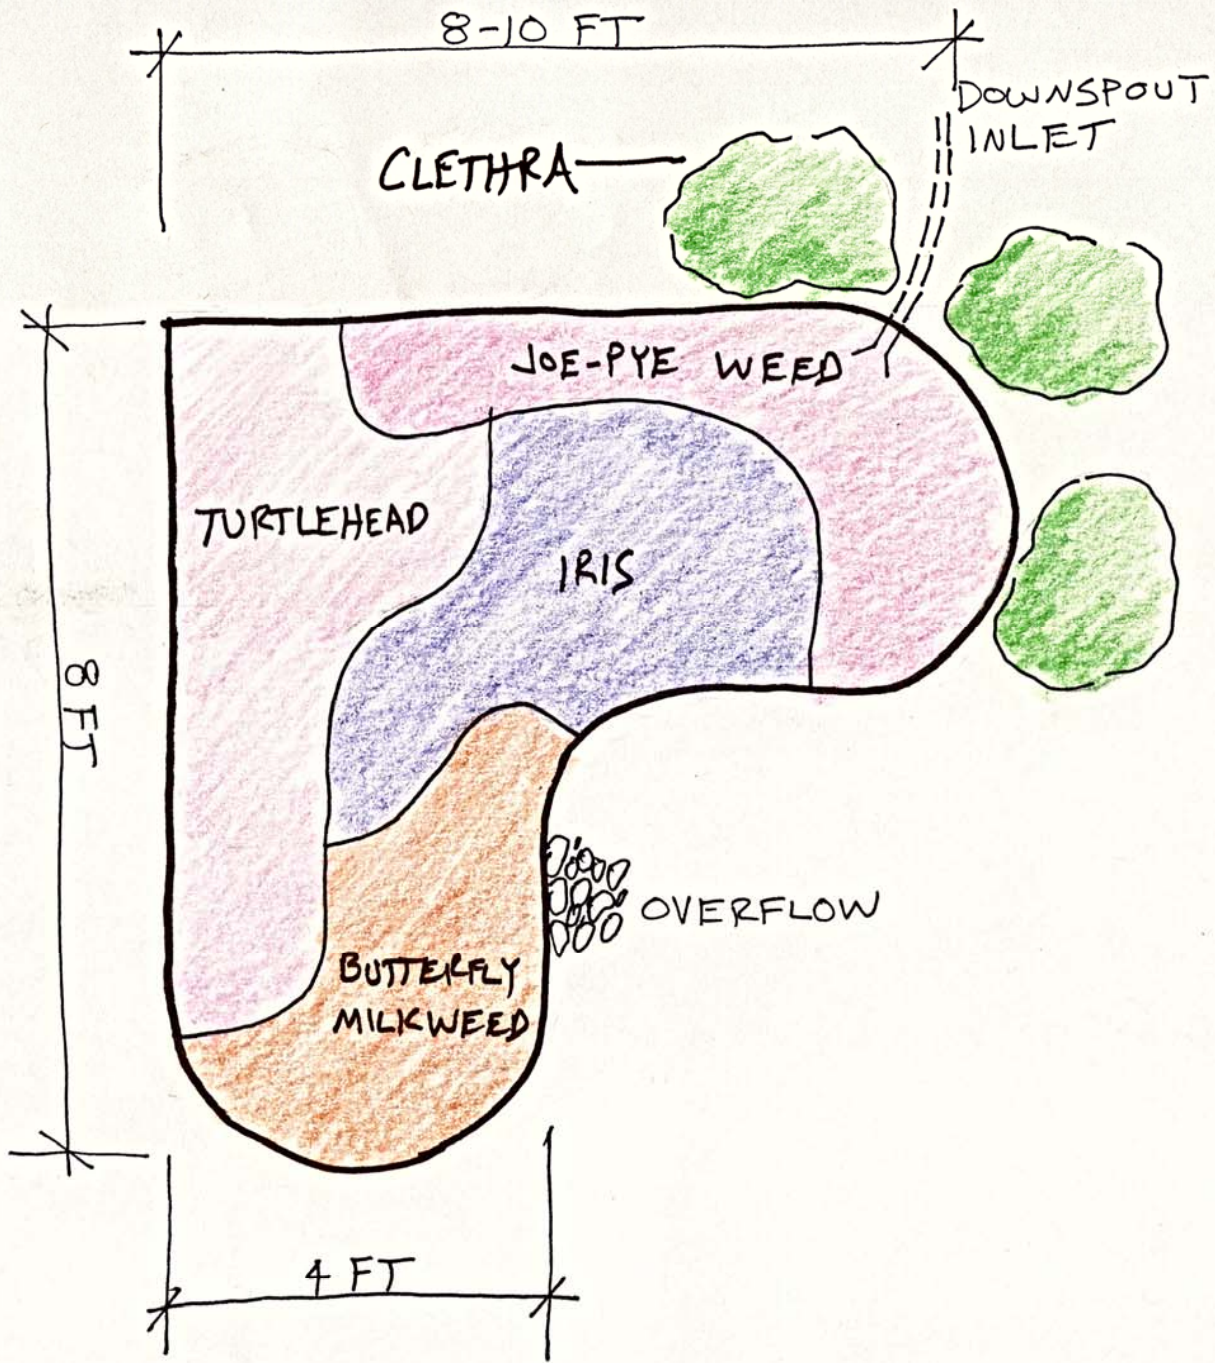 8-10 FT
DOWNSPOUT
INLET
CLETHRA
JOE-PYE WEED
TURTLEHEAD
IRIS
8 FT
OVERFLOW
BUTTERFLY
MILKWEED
4 FT